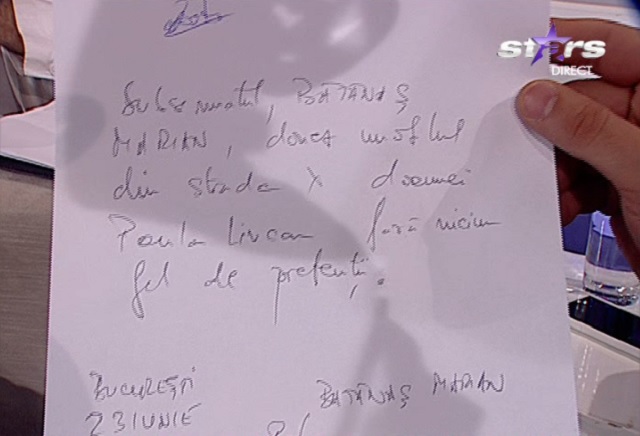 stars
DIRECT
Subsemnatul, BĂTĂNAȘ
MARIAN, donez imobilul
din strada X doamnei
Paula Livcan fără niciun
fel de pretenții.
BUCUREȘTI
BĂTĂNAȘ MARIAN
23 IUNIE